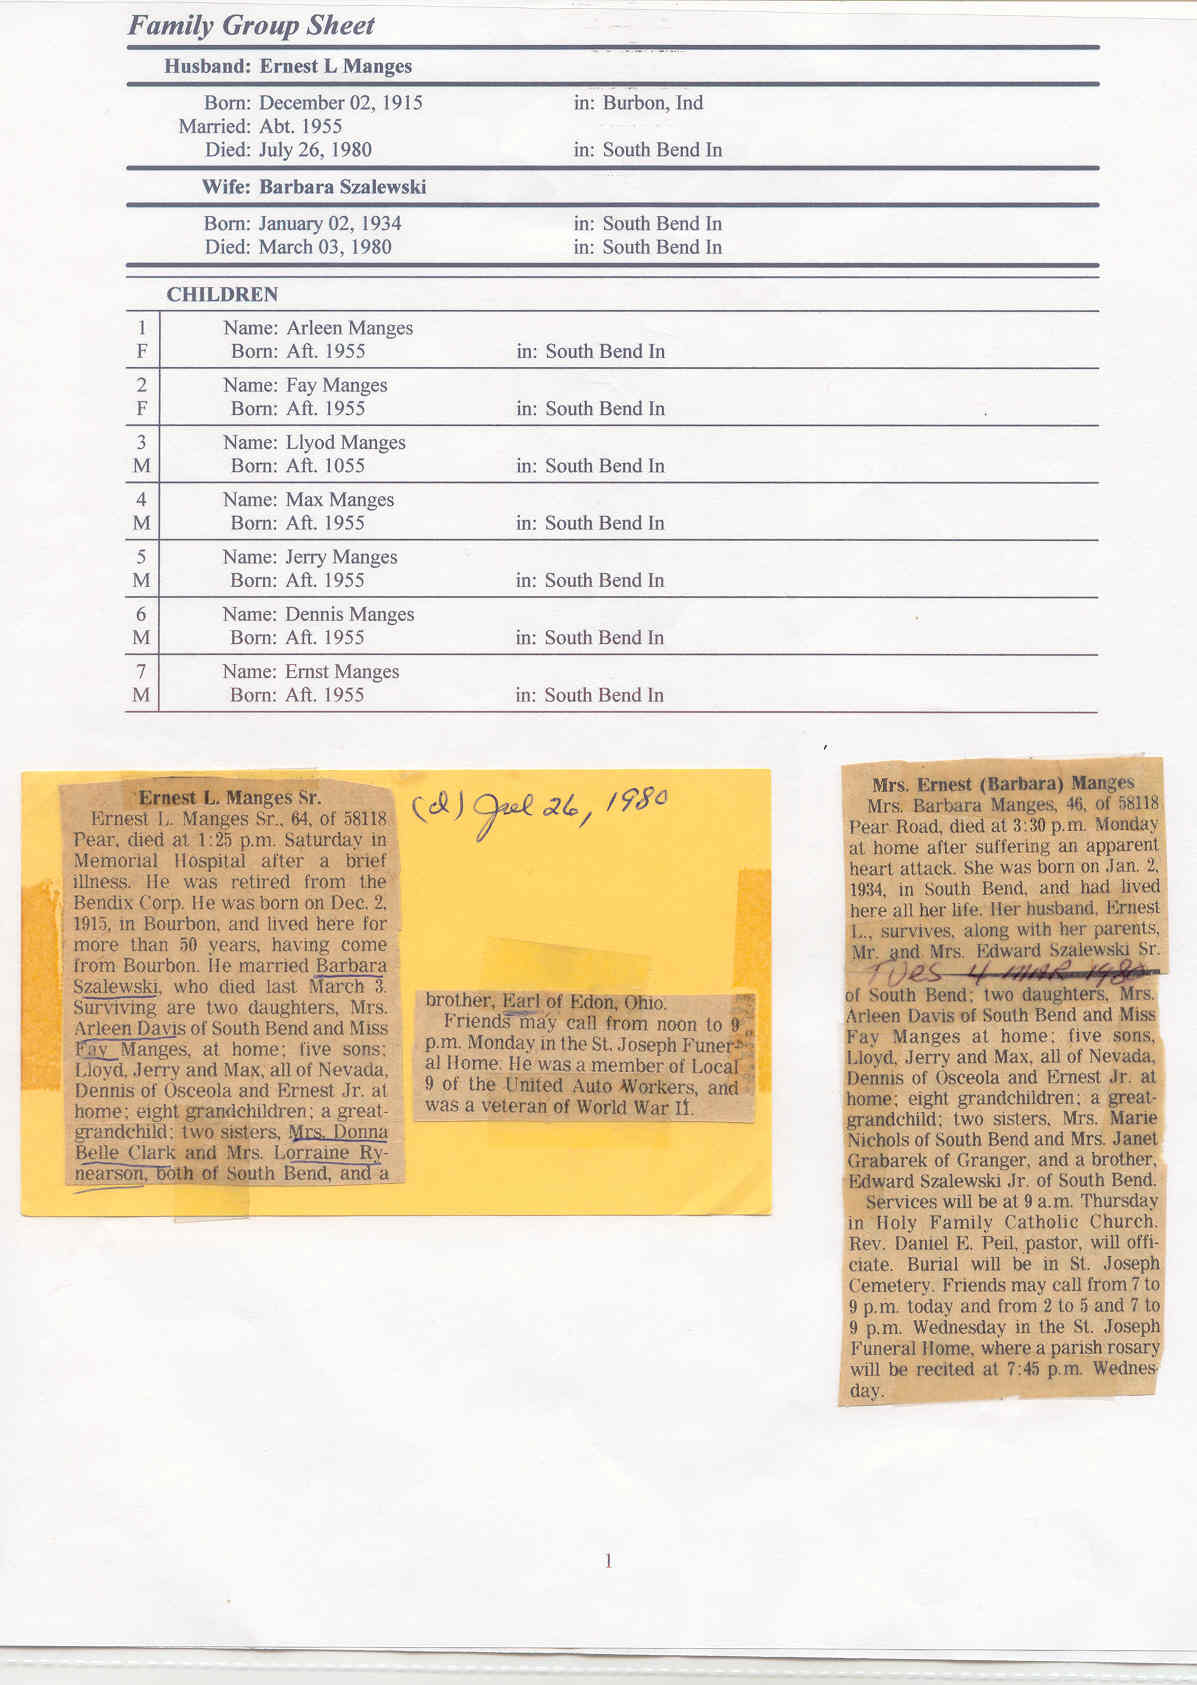 Family Group Sheet
Husband: Ernest L Manges
Born: December 02, 1915 in: Burbon, Ind
Married: Abt. 1955
Died: July 26, 1980 in: South Bend In
Wife: Barbara Szalewski
Born: January 02, 1934 in: South Bend In
Died: March 03, 1980 in: South Bend In
CHILDREN
1 Name: Arleen Manges
F Born: Aft. 1955 in: South Bend In
2 Name: Fay Manges
F Born: Aft. 1955 in: South Bend In
3 Name: Llyod Manges
M Born: Aft. 1055 in: South Bend In
4 Name: Max Manges
M Born: Aft. 1955 in: South Bend In
5 Name: Jerry Manges
M Born: Aft. 1955 in: South Bend In
6 Name: Dennis Manges
M Born: Aft. 1955 in: South Bend In
7 Name: Ernst Manges
M Born: Aft. 1955 in: South Bend In
Ernest L. Manges Sr.
Ernest L. Manges Sr., 64, of 58118
Pear, died at 1:25 p.m. Saturday in
Memorial Hospital after a brief
illness. He was retired from the
Bendix Corp. He was born on Dec. 2,
1915, in Bourbon, and lived here for
more than 50 years, having come
from Bourbon. He married Barbara
Szalewski, who died last March 3.
Surviving are two daughters, Mrs.
Arleen Davis of South Bend and Miss
Fay Manges, at home; five sons;
Lloyd, Jerry and Max, all of Nevada,
Dennis of Osceola and Ernest Jr. at
home; eight grandchildren; a great-
grandchild; two sisters, Mrs. Donna
Belle Clark and Mrs. Lorraine Ry-
nearson, both of South Bend, and a
(d) Jul 26, 1980
brother, Earl of Edon, Ohio.
Friends may call from noon to 9
p.m. Monday in the St. Joseph Funer-
al Home. He was a member of Local
9 of the United Auto Workers, and
was a veteran of World War II.
Mrs. Ernest (Barbara) Manges
Mrs. Barbara Manges, 46, of 58118
Pear Road, died at 3:30 p.m. Monday
at home after suffering an apparent
heart attack. She was born on Jan. 2,
1934, in South Bend, and had lived
here all her life. Her husband, Ernest
L., survives, along with her parents,
Mr. and Mrs. Edward Szalewski Sr.
Tues 4 MAR 1980
of South Bend; two daughters, Mrs.
Arleen Davis of South Bend and Miss
Fay Manges at home; five sons,
Lloyd, Jerry and Max, all of Nevada,
Dennis of Osceola and Ernest Jr. at
home; eight grandchildren; a great-
grandchild; two sisters, Mrs. Marie
Nichols of South Bend and Mrs. Janet
Grabarek of Granger, and a brother,
Edward Szalewski Jr. of South Bend.
Services will be at 9 a.m. Thursday
in Holy Family Catholic Church.
Rev. Daniel E. Peil, pastor, will offi-
ciate. Burial will be in St. Joseph
Cemetery. Friends may call from 7 to
9 p.m. today and from 2 to 5 and 7 to
9 p.m. Wednesday in the St. Joseph
Funeral Home, where a parish rosary
will be recited at 7:45 p.m. Wednes-
day.
1